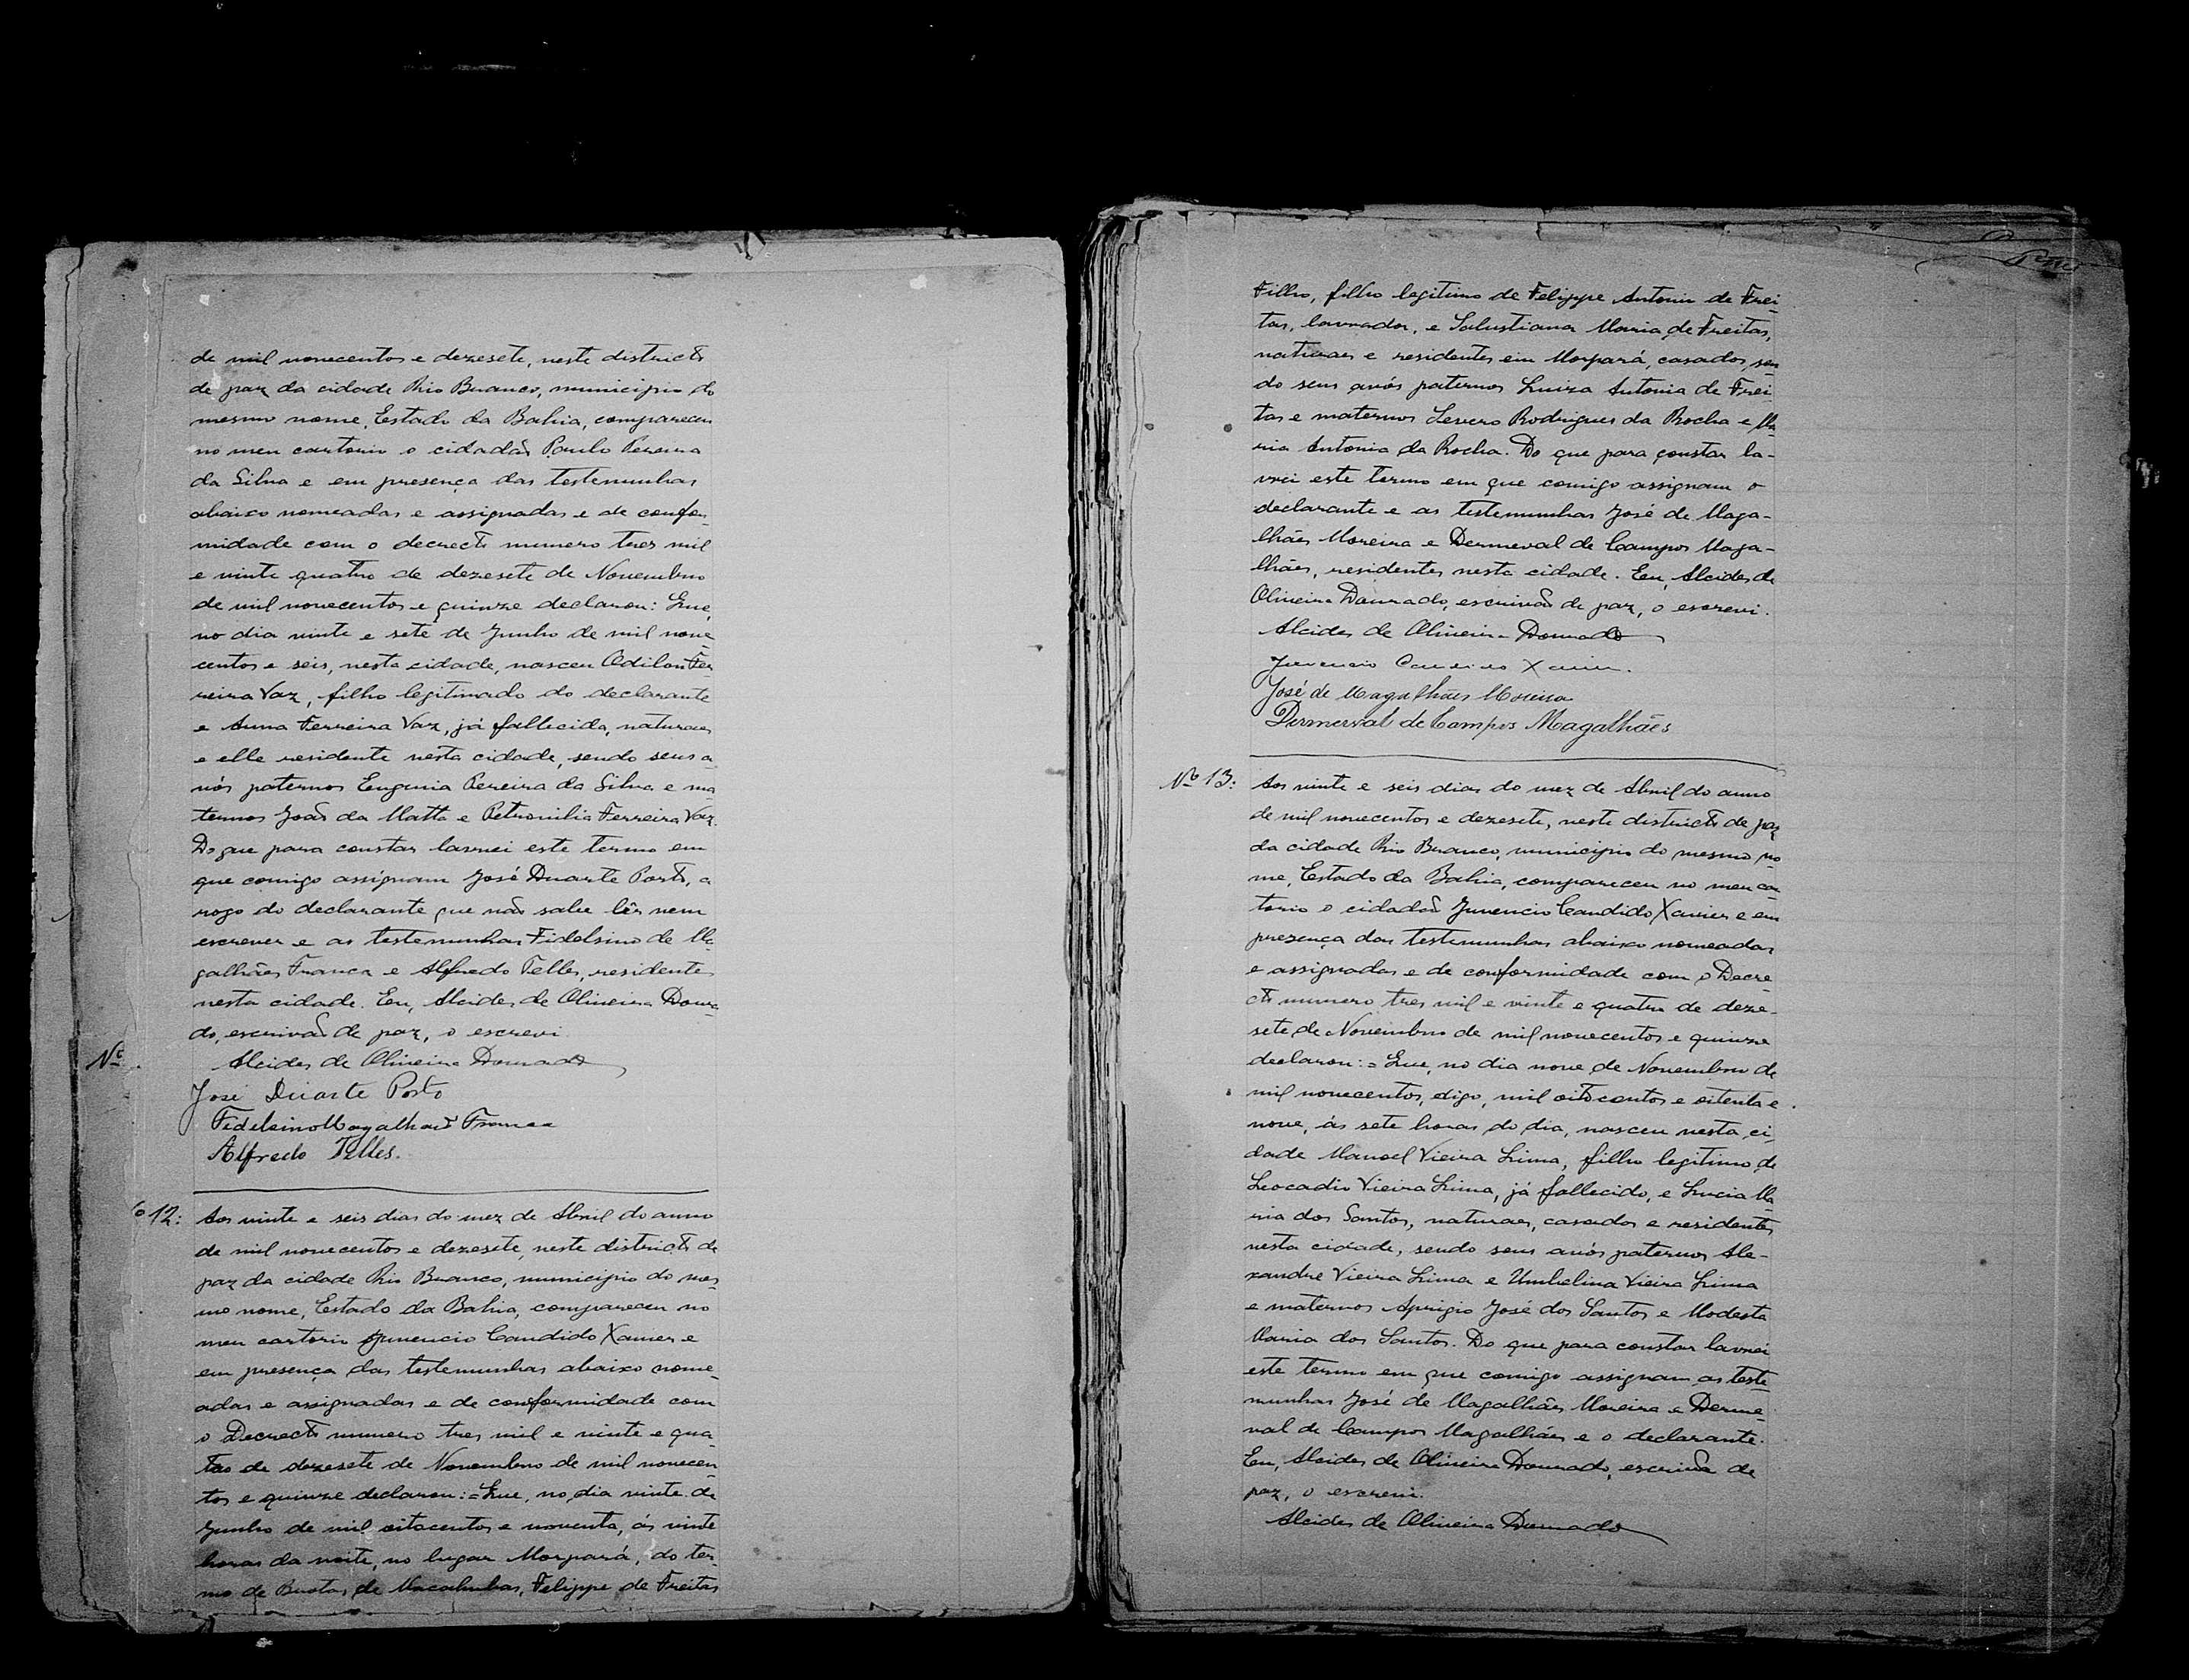 de mil nonecentos e dezesete, neste districto
de paz da cidade Rio Branco, municipio do
mesmo nome, Estado da Bahia, compareceu
no meu cartorio o cidadão Paulo Pereira
da Silva e em presença das testemunhas
abaixo nomeadas e assignadas e de confor-
midade com o decrecto numero tres mil
e vinte quatro de dezesete de Novembro
de mil novecentos e quinze declarou: Que,
no dia vinte e sete de Junho de mil nove
centos e seis, nesta cidade, nasceu Odilon Fer
reira Vaz, filho legitimado do declarante
e Anna Ferreira Vaz, já fallecida, naturaes
e elle residente nesta cidade, sendo seus a
vós paternos Eugenia Pereira da Silva e ma
ternos João da Matta e Petronilia Ferreira Vaz.
Do que para constar lavrei este termo em
que comigo assignam José Duarte Porto, a
rogo do declarante que não sabe lêr nem
escrever e as testemunhas Fidelsino de Ma
galhães Franca e Alfredo Telles, residentes
nesta cidade. Eu, Alcides de Oliveira Doura
do, escrivão de paz, o escrevi
Nº
Alcides de Oliveira Dourado
José Duarte Porto
Fidelsino Magalhães Franca
Alfredo Telles.
º 12: Aos vinte e seis dias do mez de Abril do anno
de mil novecentos e dezesete, neste districto de
paz da cidade Rio Branco, municipio do mes
mo nome, Estado da Bahia, compareceu no
meu cartorio Juvencio Candido Xavier e
em presença das testemunhas abaixo nome-
adas e assignadas e de conformidade com
o Decrecto numero tres mil e vinte e qua-
tro de dezesete de Novembro de mil novecen
tos e quinze declarou:= Que, no dia vinte de
Junho de mil oitocentos e noventa, ás vinte
horas da noite, no lugar Morpará, do ter-
mo de Brotas de Macahubas, Felippe de Freitas
Filho, filho legitimo de Felippe Antonio de Frei-
tas, lavrador, e Salustiana Maria de Freitas,
naturaes e residentes em Morpará, casados, sen
do seus avós paternos Luiza Antonia de Frei-
tas e maternos Severo Rodrigues da Rocha e Ma
ria Antonia da Rocha. Do que para constar la-
vrei este termo em que comigo assignam o
declarante e as testemunhas José de Maga-
lhães Moreira e Dermeval de Campos Maga-
lhães, residentes nesta cidade. Eu, Alcides de
Oliveira Dourado, escrivão de paz, o escrevi.
Alcides de Oliveira Dourado
Juvencio Xavier.
José de Magalhães Moreira
Dermerval de Campos Magalhães
Nº 13: Aos vinte e seis dias do mez de Abril do anno
de mil novecentos e dezesete, neste districto de paz
da cidade Rio Branco, municipio do mesmo no
me, Estado da Bahia, compareceu no meu car
torio o cidadão Juvencio Candido Xavier e em
presença das testemunhas abaixo nomeadas
e assignadas e de conformidade com o Decre
cto numero tres mil e vinte e quatro de deze-
sete de Novembro de mil novecentos e quinze
declarou:= Que, no dia nove de Novembro de
mil novecentos, digo, mil oitocentos e oitenta e
nove, ás sete horas do dia, nasceu nesta ci
dade Manoel Vieira Lima, filho legitimo de
Leocadio Vieira Lima, já fallecido, e Lucia Ma
ria dos Santos, naturaes, casados e residentes
nesta cidade, sendo seus avós paternos Ale-
xandre Vieira Lima e Umbelina Vieira Lima
e maternos Aprigio José dos Santos e Modesta
Maria dos Santos. Do que para constar lavrei
este termo em que comigo assignam as teste-
munhas José de Magalhães Moreira e Derme-
val de Campos Magalhães e o declarante.
Eu, Alcides de Oliveira Dourado, escrivão de
paz, o escrevi.
Alcides de Oliveira Dourado